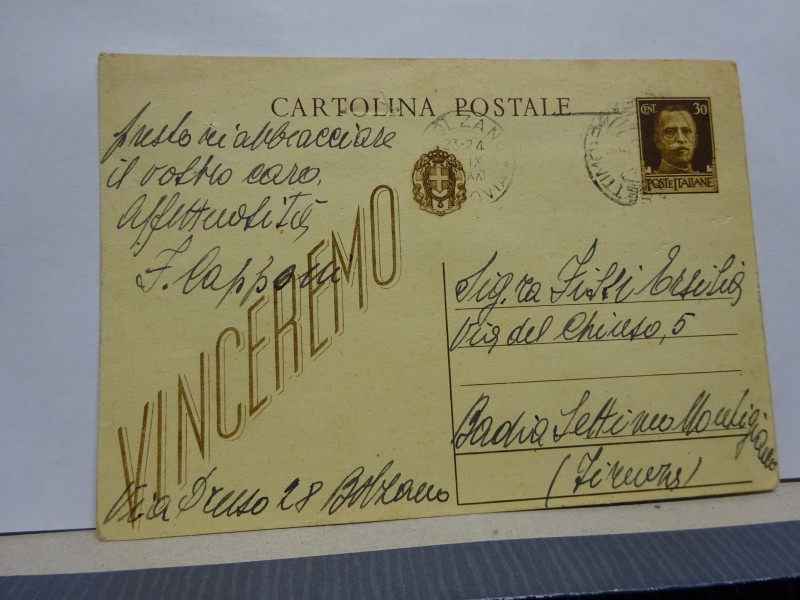 CARTOLINA POSTALE
CENT. 30
POSTE ITALIANE
BOLZANO
23-24
IX
presto riabbracciare
il vostro caro.
Affettuosità
F. Capponi
VINCEREMO
Sig.ra Ersilia
Via del Chiuso, 5
Badia Settimo Montignano
(Firenze)
Via Druso 28 Bolzano